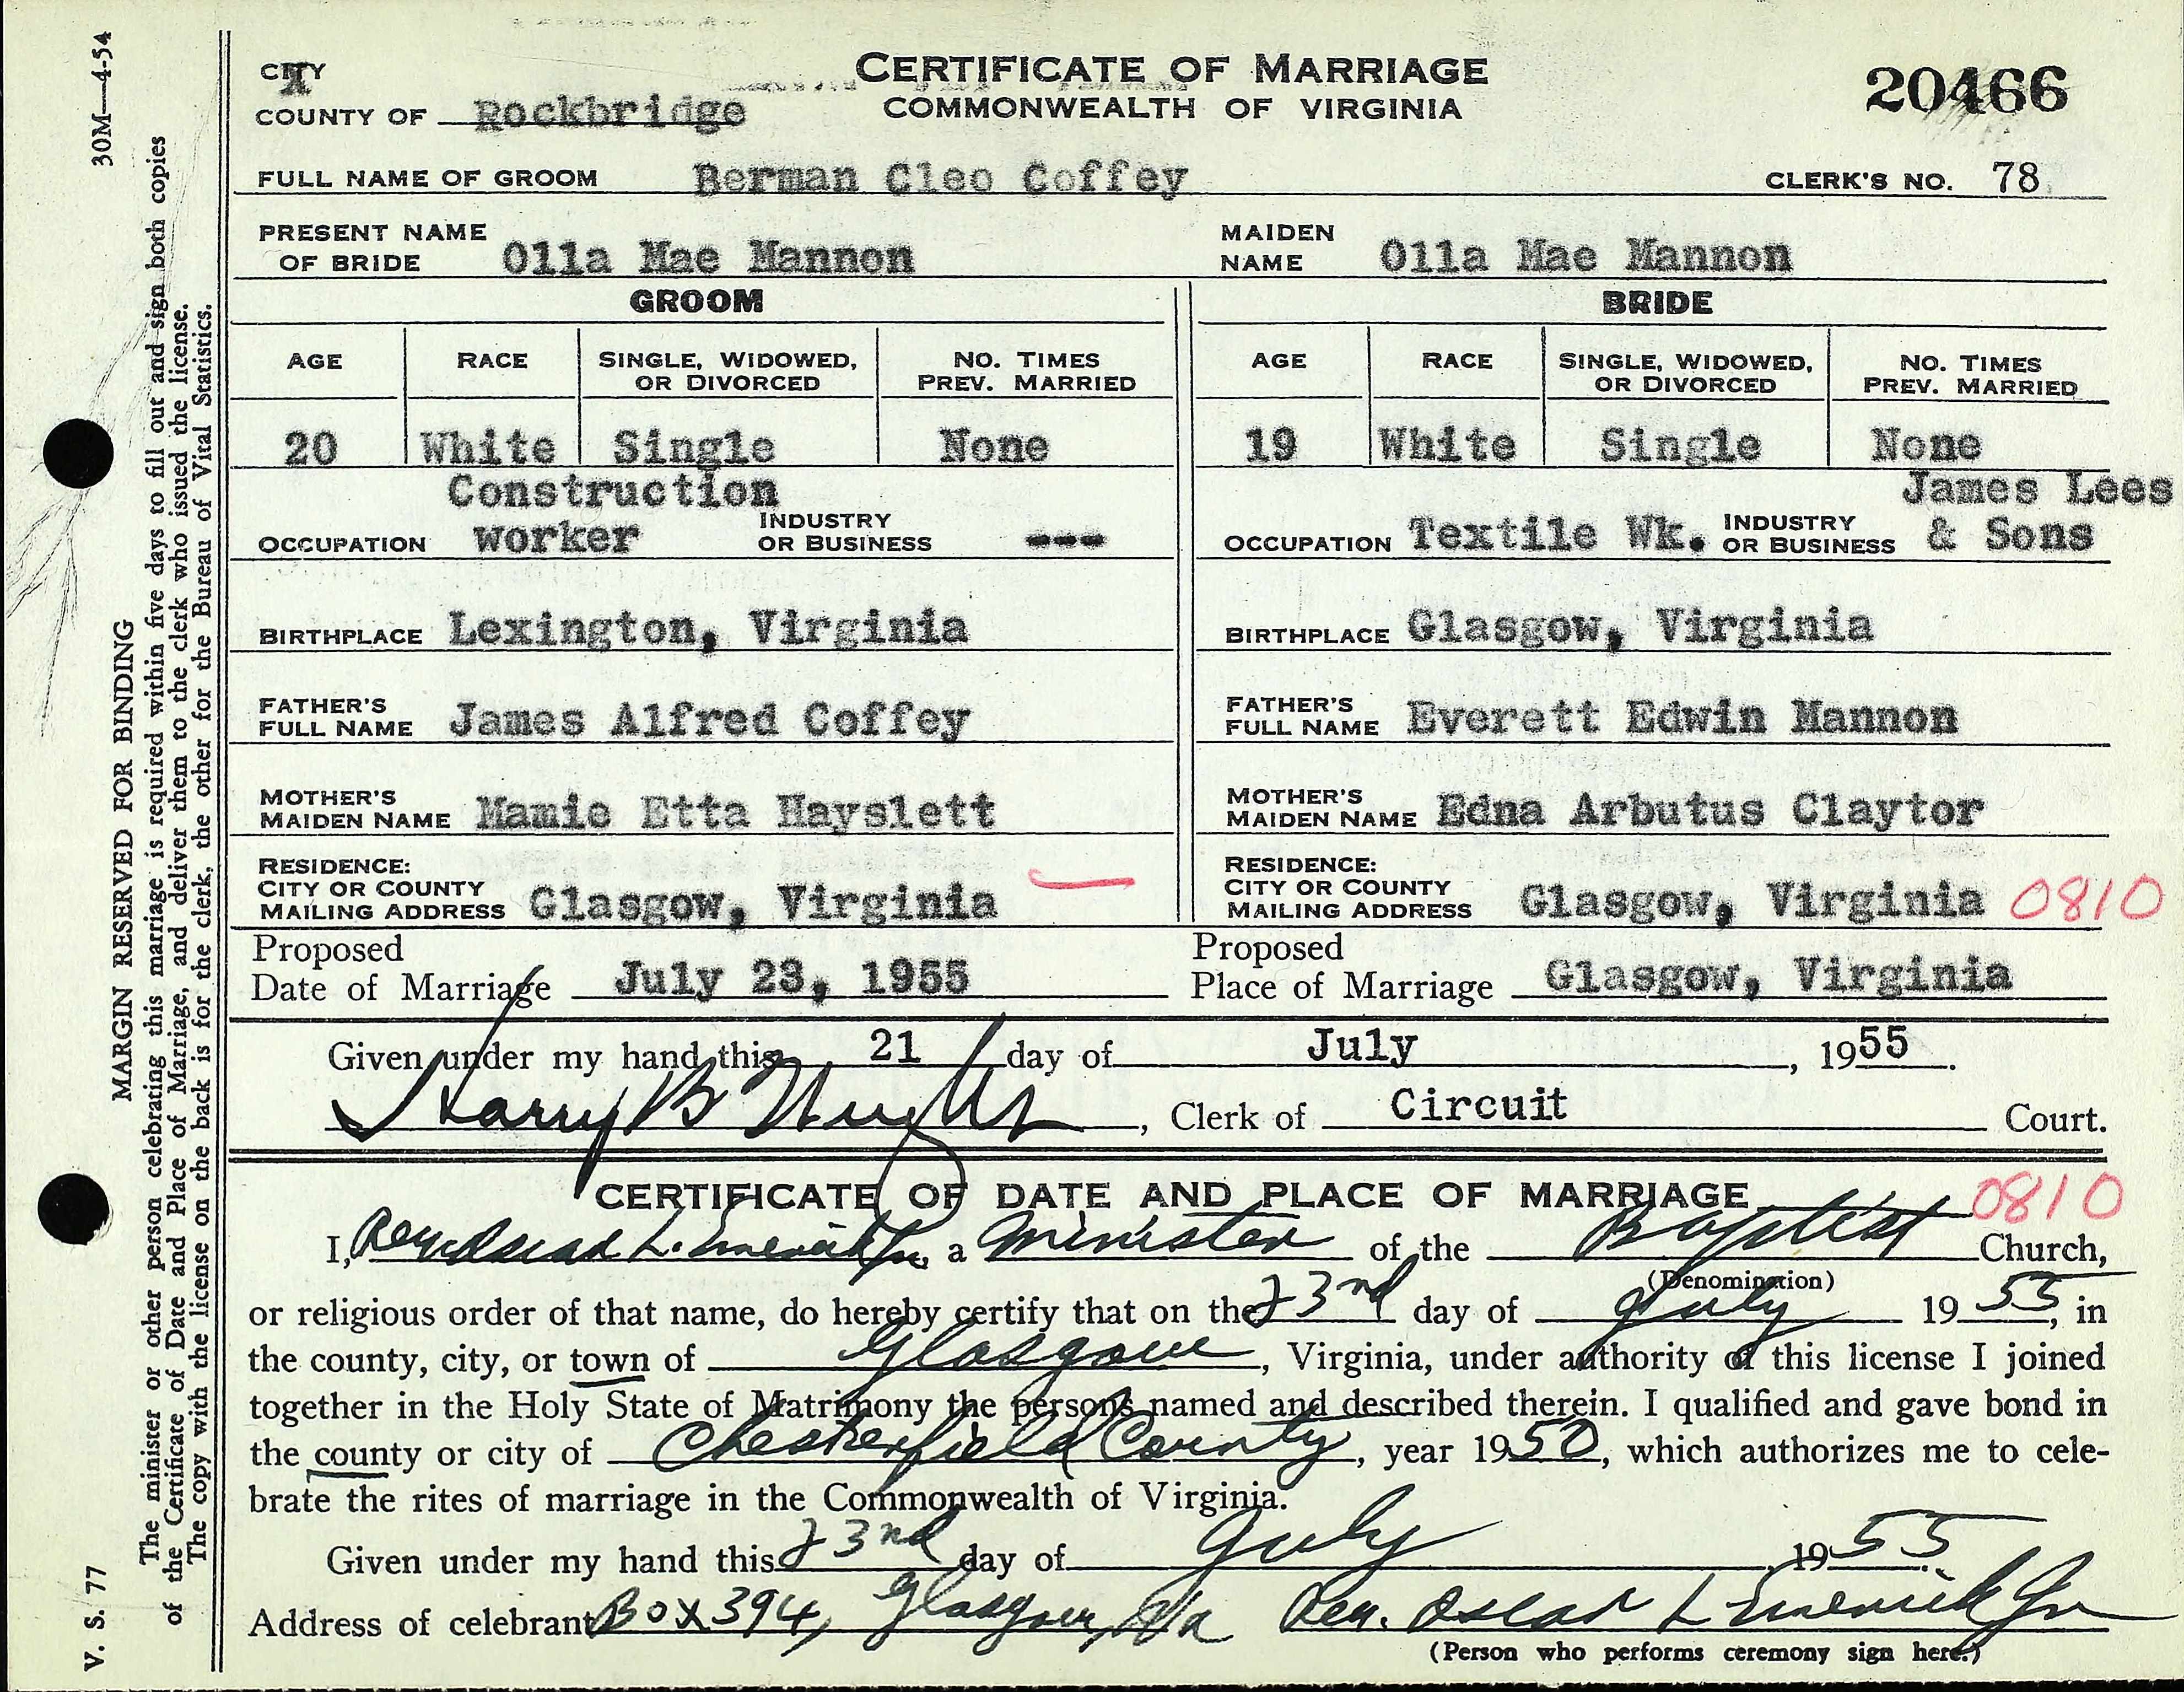 30M—4-54
CITY
X
COUNTY OF Rockbridge
CERTIFICATE OF MARRIAGE
COMMONWEALTH OF VIRGINIA
20466
FULL NAME OF GROOM Berman Cleo Coffey
CLERK'S NO. 78
PRESENT NAME OF BRIDE Olla Mae Mannon
MAIDEN NAME Olla Mae Mannon
GROOM
BRIDE
AGE RACE SINGLE, WIDOWED, OR DIVORCED NO. TIMES PREV. MARRIED
AGE RACE SINGLE, WIDOWED, OR DIVORCED NO. TIMES PREV. MARRIED
20 White Single None
19 White Single None
OCCUPATION Construction worker INDUSTRY OR BUSINESS ---
OCCUPATION Textile Wk. INDUSTRY OR BUSINESS James Lees & Sons
BIRTHPLACE Lexington, Virginia
BIRTHPLACE Glasgow, Virginia
FATHER'S FULL NAME James Alfred Coffey
FATHER'S FULL NAME Everett Edwin Mannon
MOTHER'S MAIDEN NAME Mamie Etta Hayslett
MOTHER'S MAIDEN NAME Edna Arbutus Claytor
RESIDENCE: CITY OR COUNTY MAILING ADDRESS Glasgow, Virginia
RESIDENCE: CITY OR COUNTY MAILING ADDRESS Glasgow, Virginia 0810
Proposed Date of Marriage July 23, 1955
Proposed Place of Marriage Glasgow, Virginia
Given under my hand this 21 day of July, 1955.
Harry B Wright, Clerk of Circuit Court.
CERTIFICATE OF DATE AND PLACE OF MARRIAGE 0810
I, Rev. Oscar L. Emerick Jr., a Minister of the Baptist Church,
(Denomination)
or religious order of that name, do hereby certify that on the 23rd day of July 1955, in
the county, city, or town of Glasgow, Virginia, under authority of this license I joined
together in the Holy State of Matrimony the persons named and described therein. I qualified and gave bond in
the county or city of Chesterfield County, year 1950, which authorizes me to cele-
brate the rites of marriage in the Commonwealth of Virginia.
Given under my hand this 23rd day of July 1955.
Address of celebrant Box 394, Glasgow, Va Rev. Oscar L Emerick Jr
(Person who performs ceremony sign here.)
V. S. 77
MARGIN RESERVED FOR BINDING
The minister or other person celebrating this marriage is required within five days to fill out and sign both copies
of the Certificate of Date and Place of Marriage, and deliver them to the clerk who issued the license.
The copy with the license on the back is for the clerk, the other for the Bureau of Vital Statistics.